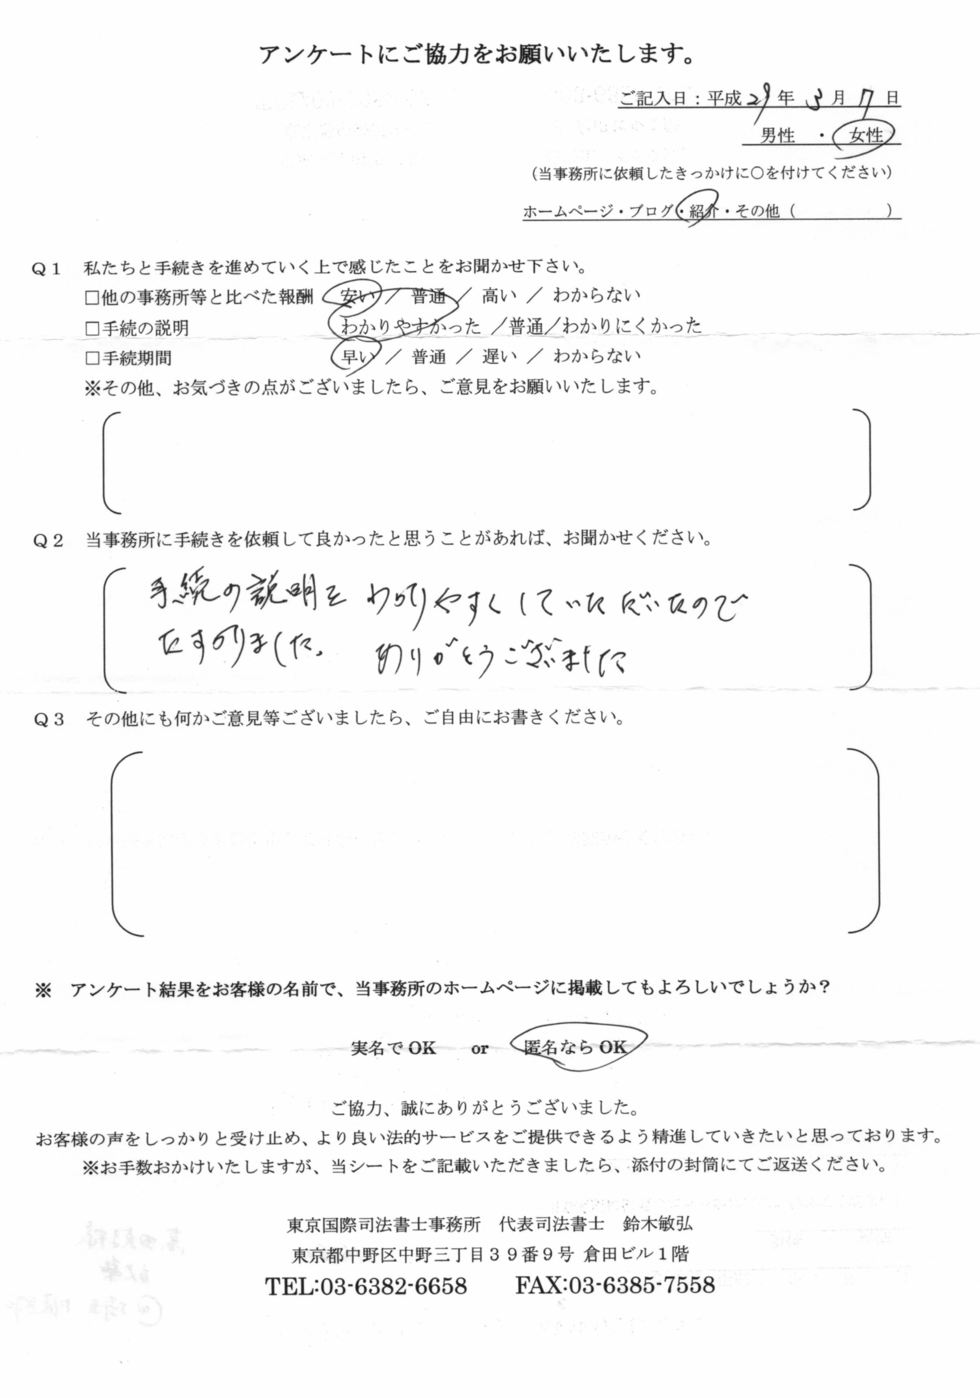 アンケートにご協力をお願いいたします。
ご記入日：平成29年 3月 7日
男性 ・ 女性
（当事務所に依頼したきっかけに○を付けてください）
ホームページ・ブログ・紹介・その他（　　　　　）
Ｑ１　私たちと手続きを進めていく上で感じたことをお聞かせ下さい。
□他の事務所等と比べた報酬　安い ／ 普通 ／ 高い ／ わからない
□手続の説明　わかりやすかった ／普通／わかりにくかった
□手続期間　早い ／ 普通 ／ 遅い ／ わからない
※その他、お気づきの点がございましたら、ご意見をお願いいたします。
Ｑ２　当事務所に手続きを依頼して良かったと思うことがあれば、お聞かせください。
手続の説明を わかりやすくしていただいたので
たすかりました。 ありがとうございました
Ｑ３　その他にも何かご意見等ございましたら、ご自由にお書きください。
※　アンケート結果をお客様の名前で、当事務所のホームページに掲載してもよろしいでしょうか？
実名でOK　or　匿名ならOK
ご協力、誠にありがとうございました。
お客様の声をしっかりと受け止め、より良い法的サービスをご提供できるよう精進していきたいと思っております。
※お手数おかけいたしますが、当シートをご記載いただきましたら、添付の封筒にてご返送ください。
東京国際司法書士事務所　代表司法書士　鈴木敏弘
東京都中野区中野三丁目３９番９号 倉田ビル１階
TEL:03-6382-6658　FAX:03-6385-7558